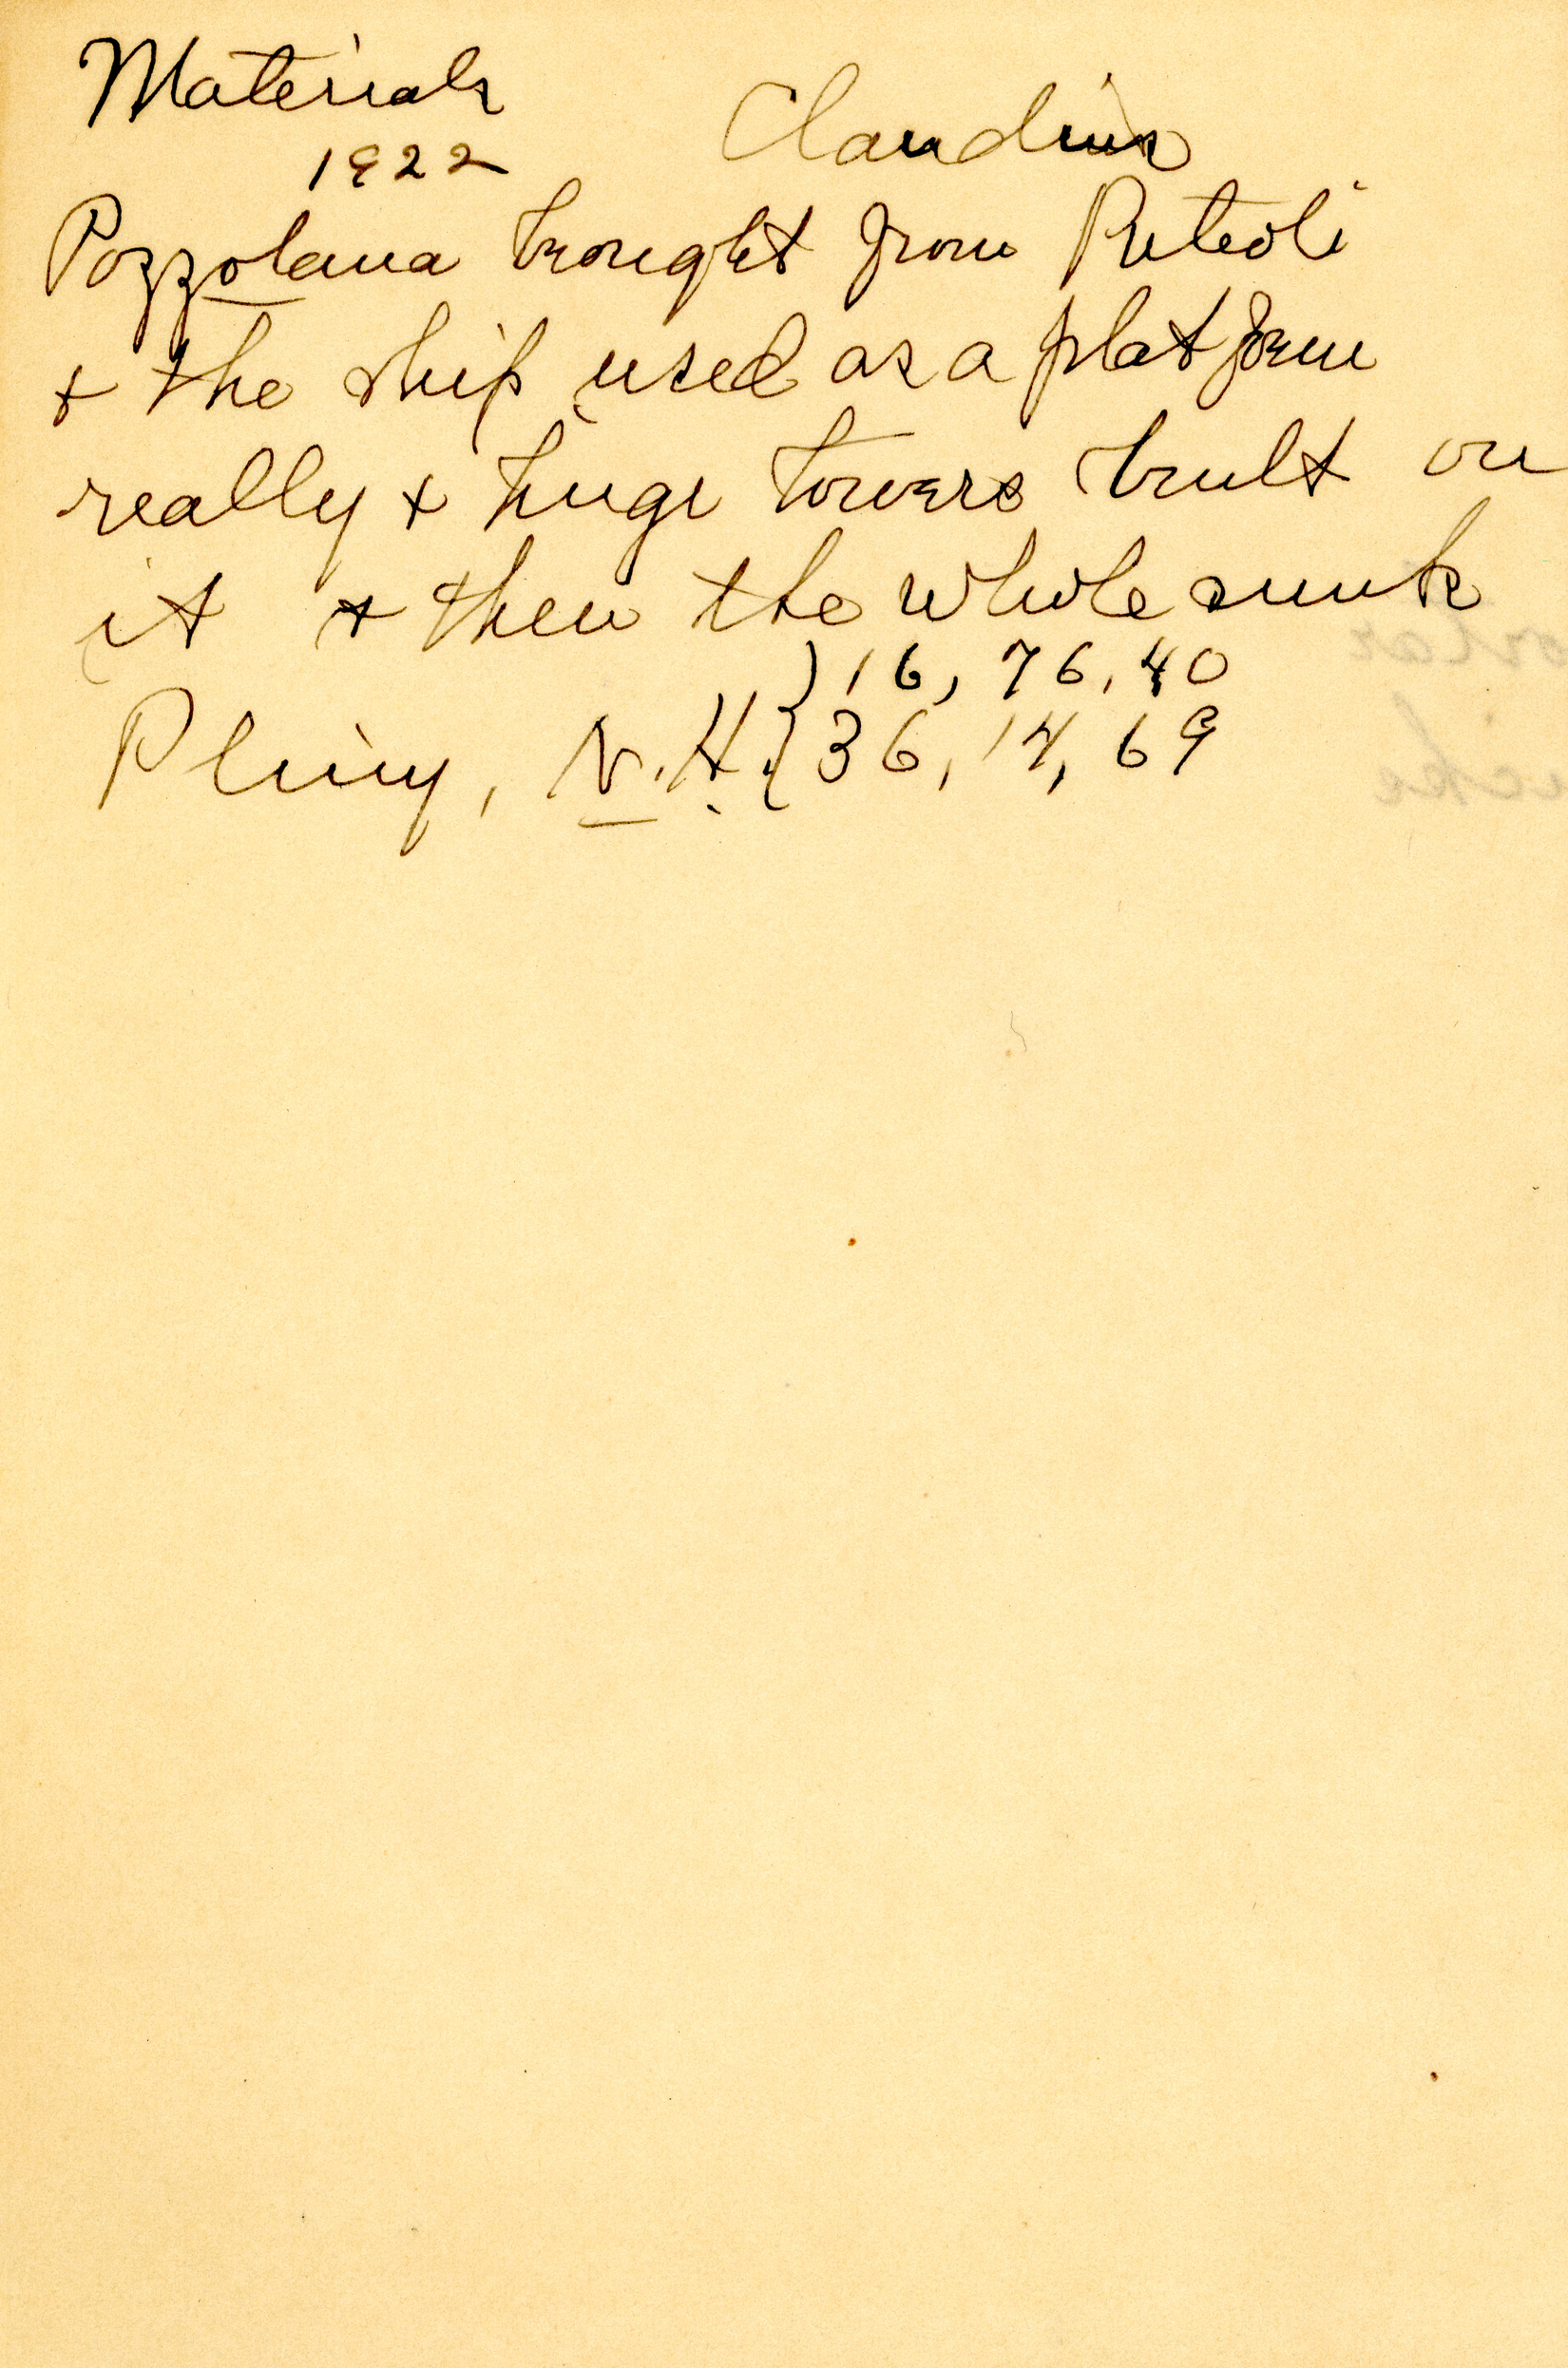 Materials
Claudius
1922
Pozzolana brought from Puteoli
+ the ship used as a platform
really + huge towers built on
it + then the whole sunk
}16, 76, 40
Pliny, N.H.{36, 14, 69